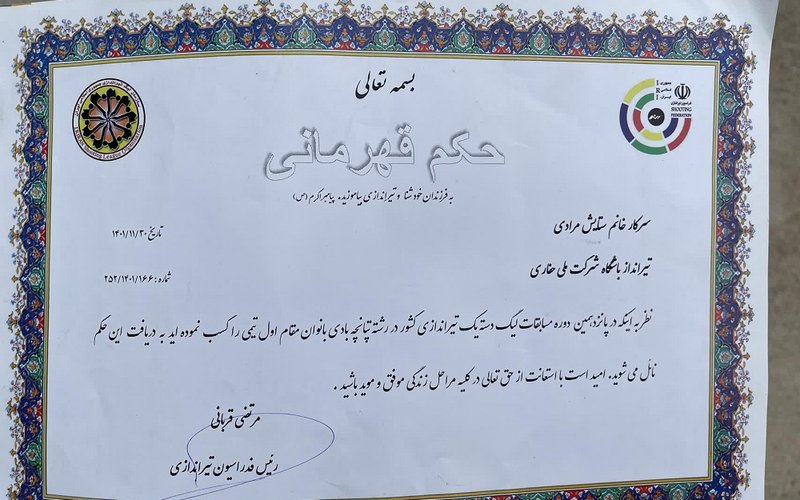 بسمه تعالی
جمهوری
اسلامی
ایران
I
R
I
فدراسیون تیراندازی
SHOOTING
FEDERATION
حکم قهرمانی
به فرزندان خود شنا و تیراندازی بیاموزید. پیامبر اکرم (ص)
سرکار خانم ستایش مرادی
تاریخ ۱۴۰۱/۱۱/۳۰
تیرانداز باشگاه شرکت ملی حفاری
شماره: ۲۵۲/۱۴۰۱/۱۶۶
نظر به اینکه در پانزدهمین دوره مسابقات لیگ دسته یک تیراندازی کشور در رشته تپانچه بادی بانوان مقام اول تیمی را کسب نموده اید به دریافت این حکم
نائل می شوید. امید است با استعانت از حق تعالی در کلیه مراحل زندگی موفق و موید باشید .
مرتضی قربانی
رئیس فدراسیون تیراندازی